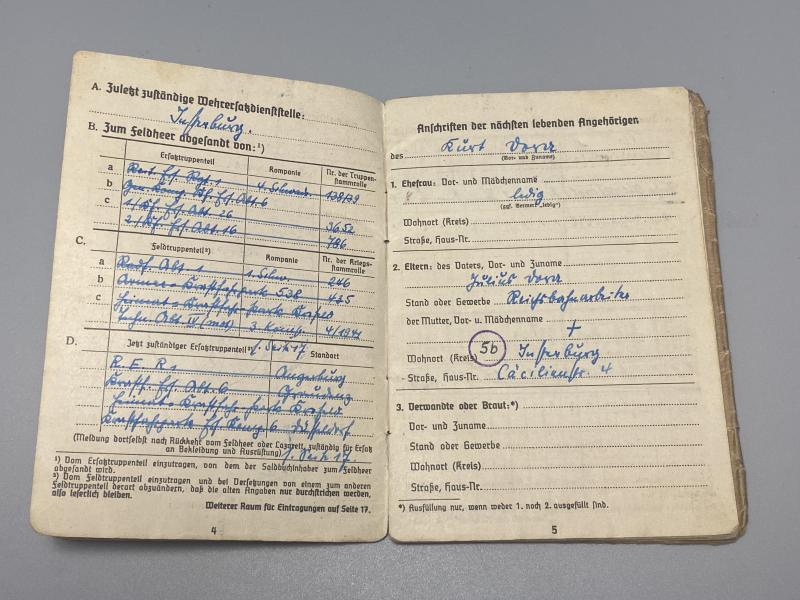 A. Zuletzt zuständige Wehrersatzdienststelle:
Insterburg.
B. Zum Feldheer abgesandt von:¹)
Ersatztruppenteil Kompanie Nr. der Truppenstammrolle
a Reit. Ers. Abt. 1 4. Schwadr. 138/39
b Kf. Ers. Abt. 6
c 1/Kf. Ers. Abt. 26 3652
2/Kf. Ers. Abt. 16 786
C. Feldtruppenteil²) Kompanie Nr. der Kriegsstammrolle
a Radf. Abt. 1 1. Schw. 246
b Armee-Kraftfahrpark 538 475
c Heimat-Kraftfahr-Park
Abt. IV (mot) 3. Komp. 4/1941
D. Jetzt zuständiger Ersatztruppenteil²) s. Seite 17 Standort
R. E. R 1 Angerburg
Kraftf. Ers. Abt. 6 Graudenz
Heimat-Kraftfahr-Park
Kraftfahrpark Ers. Komp. 6 Düsseldorf
(Meldung dortselbst nach Rückkehr vom Feldheer oder Lazarett, zuständig für Ersatz
an Bekleidung und Ausrüstung) s. Seite 17.
¹) Vom Ersatztruppenteil einzutragen, von dem der Soldbuchinhaber zum Feldheer
abgesandt wird.
²) Vom Feldtruppenteil einzutragen und bei Versetzungen von einem zum anderen
Feldtruppenteil derart abzuändern, daß die alten Angaben nur durchstrichen werden,
also leserlich bleiben.
Weiterer Raum für Eintragungen auf Seite 17.
4
Anschriften der nächsten lebenden Angehörigen
des Kurt Dora
(Vor- und Zuname)
1. Ehefrau: Vor- und Mädchenname
ledig
(ggf. Vermerk „ledig")
Wohnort (Kreis)
Straße, Haus-Nr.
2. Eltern: des Vaters, Vor- und Zuname
Julius Dora
Stand oder Gewerbe Reichsbahnarbeiter
der Mutter, Vor- u. Mädchenname
+
Wohnort (Kreis) 5b Insterburg
Straße, Haus-Nr. Cäcilienstr. 4
3. Verwandte oder Braut:*)
Vor- und Zuname
Stand oder Gewerbe
Wohnort (Kreis)
Straße, Haus-Nr.
*) Ausfüllung nur, wenn weder 1. noch 2. ausgefüllt sind.
5